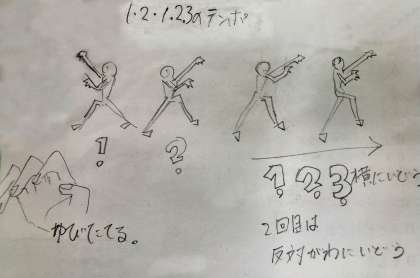 1・2・1.2.3のテンポ
1 2
1 2 3 横にいどう
ゆびたてる。
2回目は
反対がわにいどう